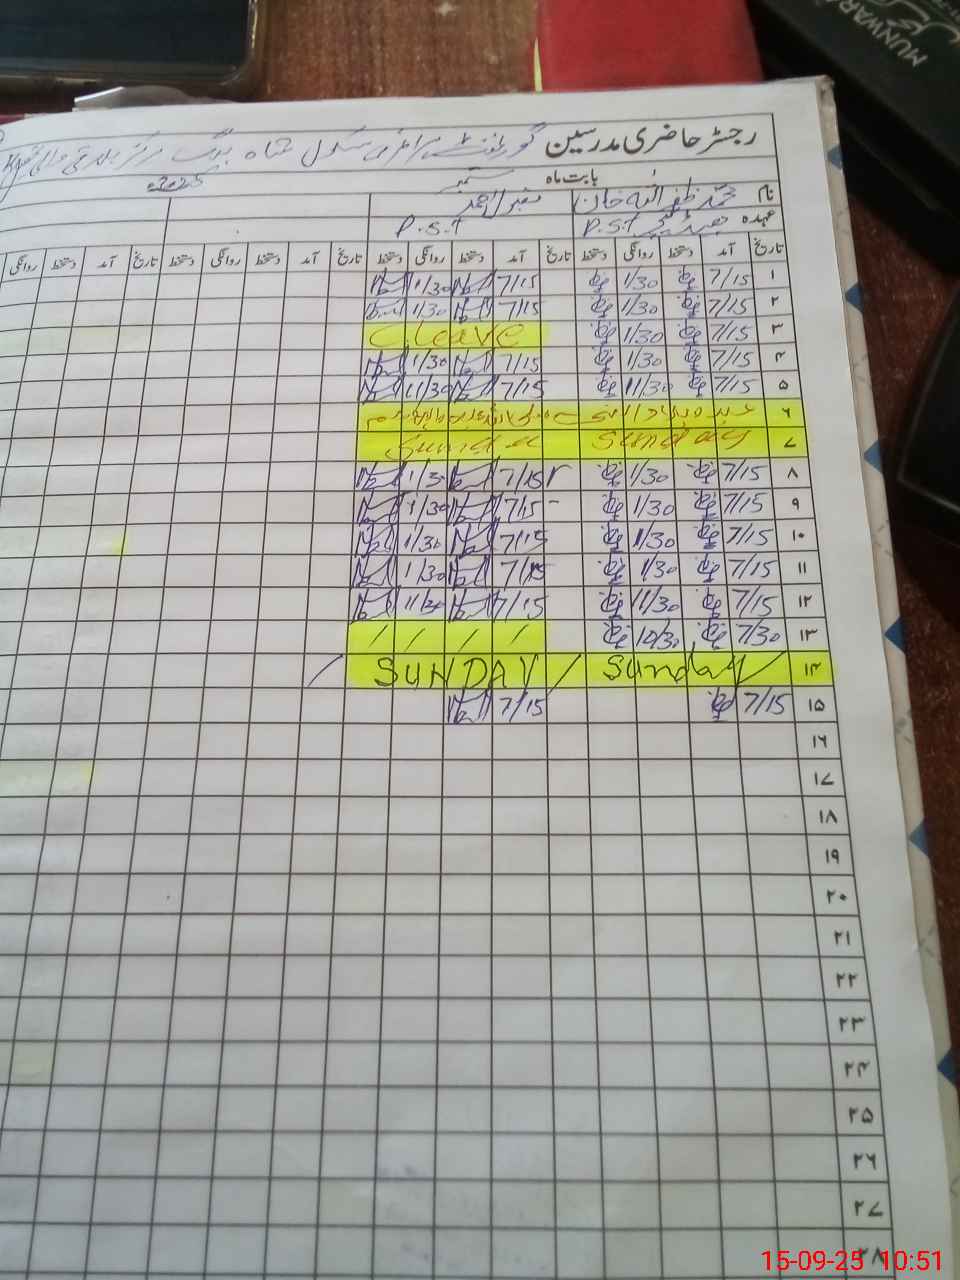 MUNWAR
رجسٹر حاضری مدرسین گورنمنٹ پرائمری سکول شاہ بیگ مرکز
بابت ماہ ستمبر 2025
نام محمد ظفر اللہ خان مقبول احمد
عہدہ P.S.T P.S.T
تاریخ آمد دستخط روانگی دستخط تاریخ آمد دستخط روانگی دستخط تاریخ آمد دستخط روانگی دستخط تاریخ آمد دستخط روانگی
۱ 7/15 1/30 7/15 1/30
۲ 7/15 1/30 7/15 1/30
۳ 7/15 1/30 C.leave
۴ 7/15 1/30 7/15 1/30
۵ 7/15 11/30 7/15 11/30
۶
۷ Sunday Sunde
۸ 7/15 1/30 7/15 1/30
۹ 7/15 1/30 7/15 1/30
۱۰ 7/15 1/30 7/15 1/30
۱۱ 7/15 1/30 7/15 1/30
۱۲ 7/15 11/30 7/15 11/30
۱۳ 7/30 10/30 / / / /
۱۴ Sunday / SUNDAY /
۱۵ 7/15 7/15
۱۶
۱۷
۱۸
۱۹
۲۰
۲۱
۲۲
۲۳
۲۴
۲۵
۲۶
۲۷
۲۸
15-09-25 10:51